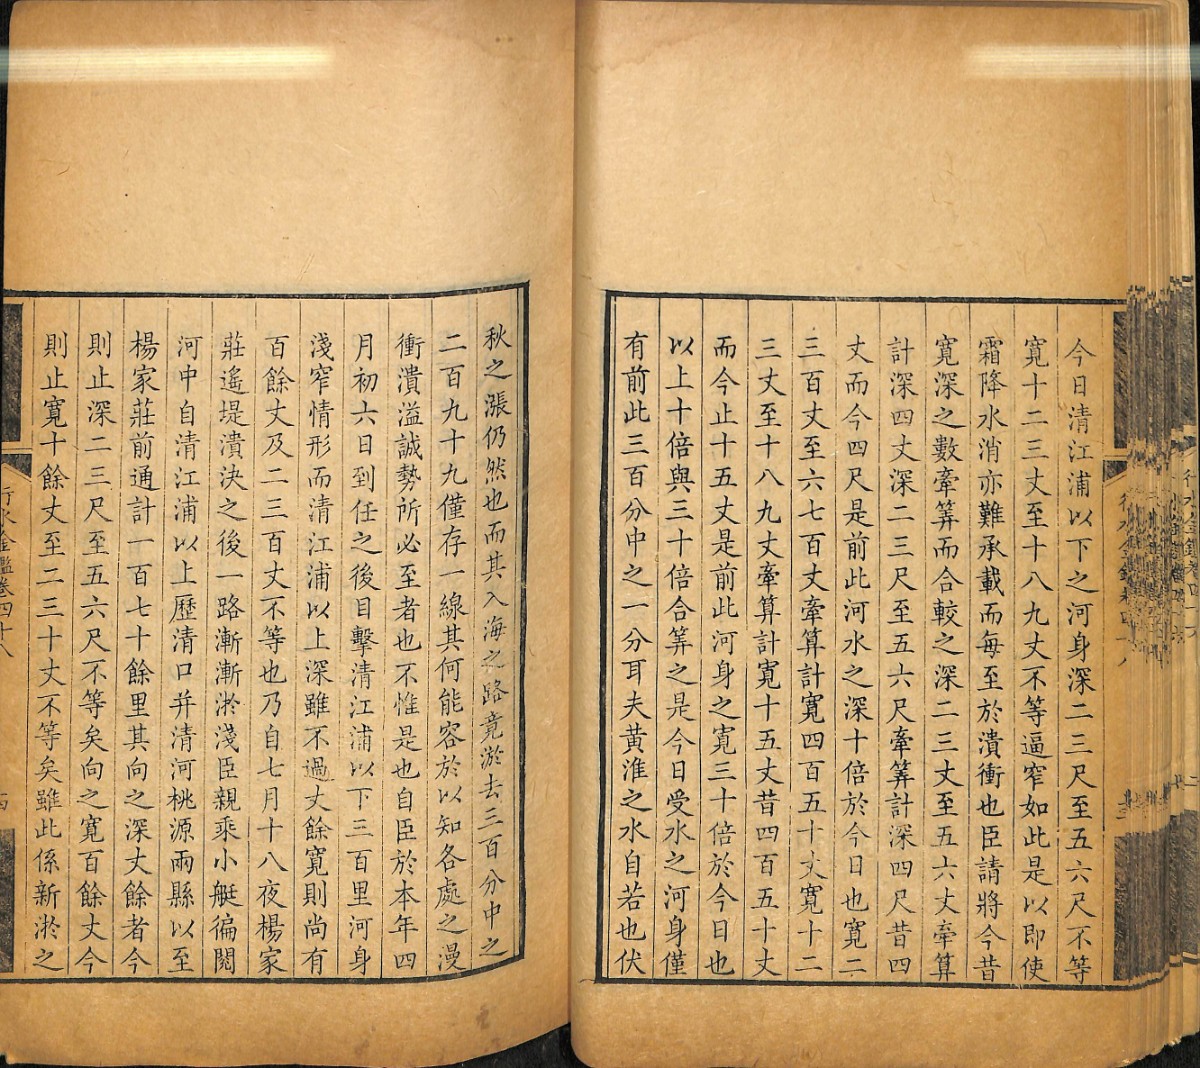 今日清江浦以下之河身深二三尺至五六尺不等
寛十二三丈至十八九丈不等逼窄如此是以即使
霜降水消亦難承載而每至於潰衝也臣請將今昔
寛深之數牽筭而合較之深二三丈至五六丈牽算
計深四丈深二三尺至五六尺牽筭計深四尺昔四
丈而今四尺是前此河水之深十倍於今日也寛二
三百丈至六七百丈牽算計寛四百五十丈寛十二
三丈至十八九丈牽算計寛十五丈昔四百五十丈
而今止十五丈是前此河身之寛三十倍於今日也
以上十倍與三十倍合筭之是今日受水之河身僅
有前此三百分中之一分耳夫黄淮之水自若也伏
秋之漲仍然也而其入海之路竟淤去三百分中之
二百九十九僅存一線其何能容於以知各處之漫
衝潰溢誠勢所必至者也不惟是也自臣於本年四
月初六日到任之後目擊清江浦以下三百里河身
淺窄情形而清江浦以上深雖不過丈餘寛則尚有
百餘丈及二三百丈不等也乃自七月十八夜楊家
莊遙堤潰決之後一路漸漸淤淺臣親乘小艇徧閱
河中自清江浦以上歷清口并清河桃源兩縣以至
楊家莊前通計一百七十餘里其向之深丈餘者今
則止深二三尺至五六尺不等矣向之寛百餘丈今
則止寛十餘丈至二三十丈不等矣雖此係新淤之
行水金鑑卷四十八